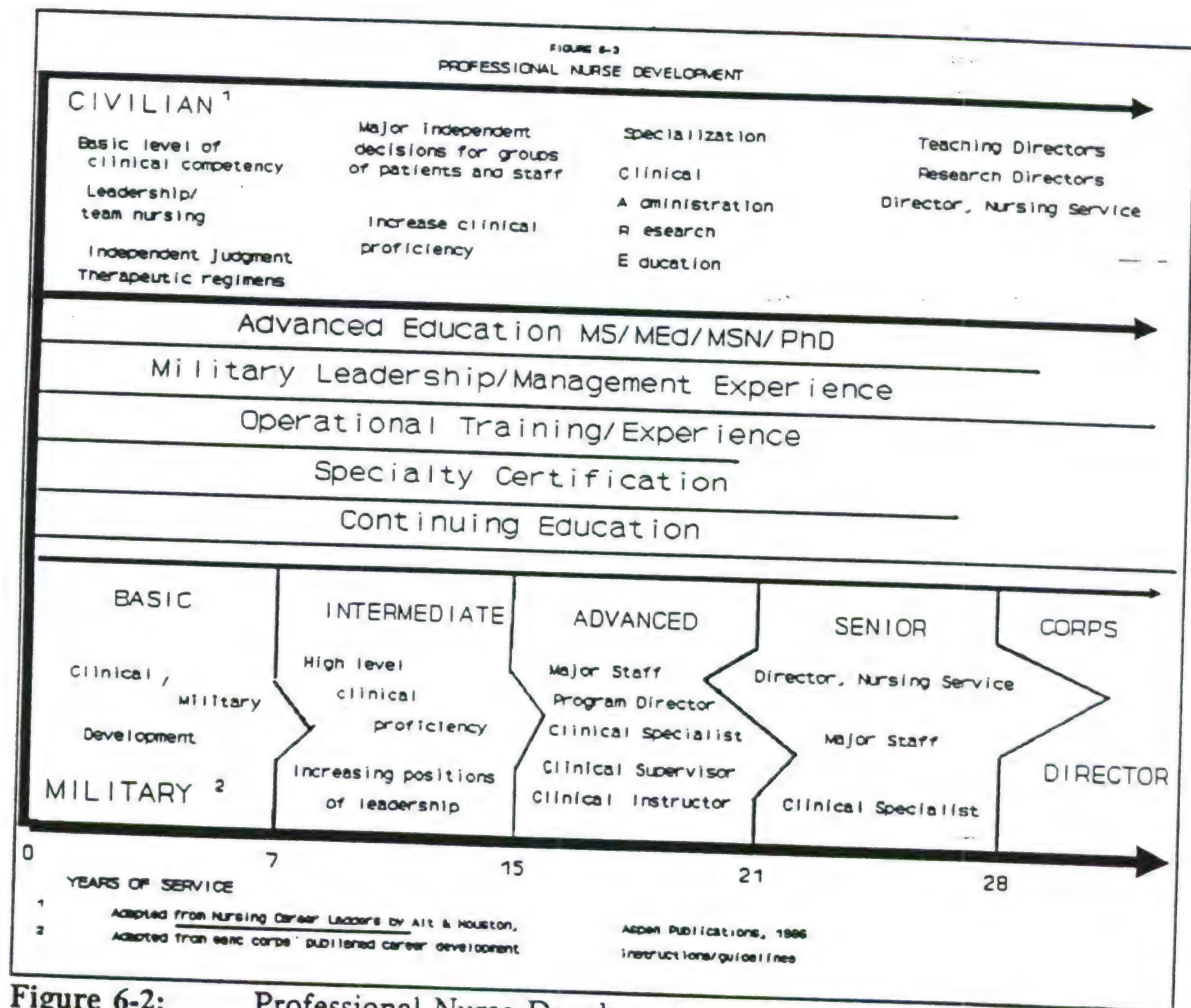 FIGURE 6-3
PROFESSIONAL NURSE DEVELOPMENT
CIVILIAN 1
Basic level of
clinical competency
Leadership/
team nursing
Independent Judgment
Therapeutic regimens
Major independent
decisions for groups
of patients and staff
Increase clinical
proficiency
Specialization
Clinical
A dministration
R esearch
E ducation
Teaching Directors
Research Directors
Director, Nursing Service
Advanced Education MS/MEd/MSN/PhD
Military Leadership/Management Experience
Operational Training/Experience
Specialty Certification
Continuing Education
BASIC
Clinical /
Military
Development
MILITARY 2
INTERMEDIATE
High level
clinical
proficiency
Increasing positions
of leadership
ADVANCED
Major Staff
Program Director
Clinical Specialist
Clinical Supervisor
Clinical Instructor
SENIOR
Director, Nursing Service
Major Staff
Clinical Specialist
CORPS
DIRECTOR
0 7 15 21 28
YEARS OF SERVICE
1 Adapted from Nursing Career Ladders by Alt & Houston, Aspen Publications, 1986
2 Adapted from corps' published career development instructions/guidelines
Figure 6-2: Professional Nurse